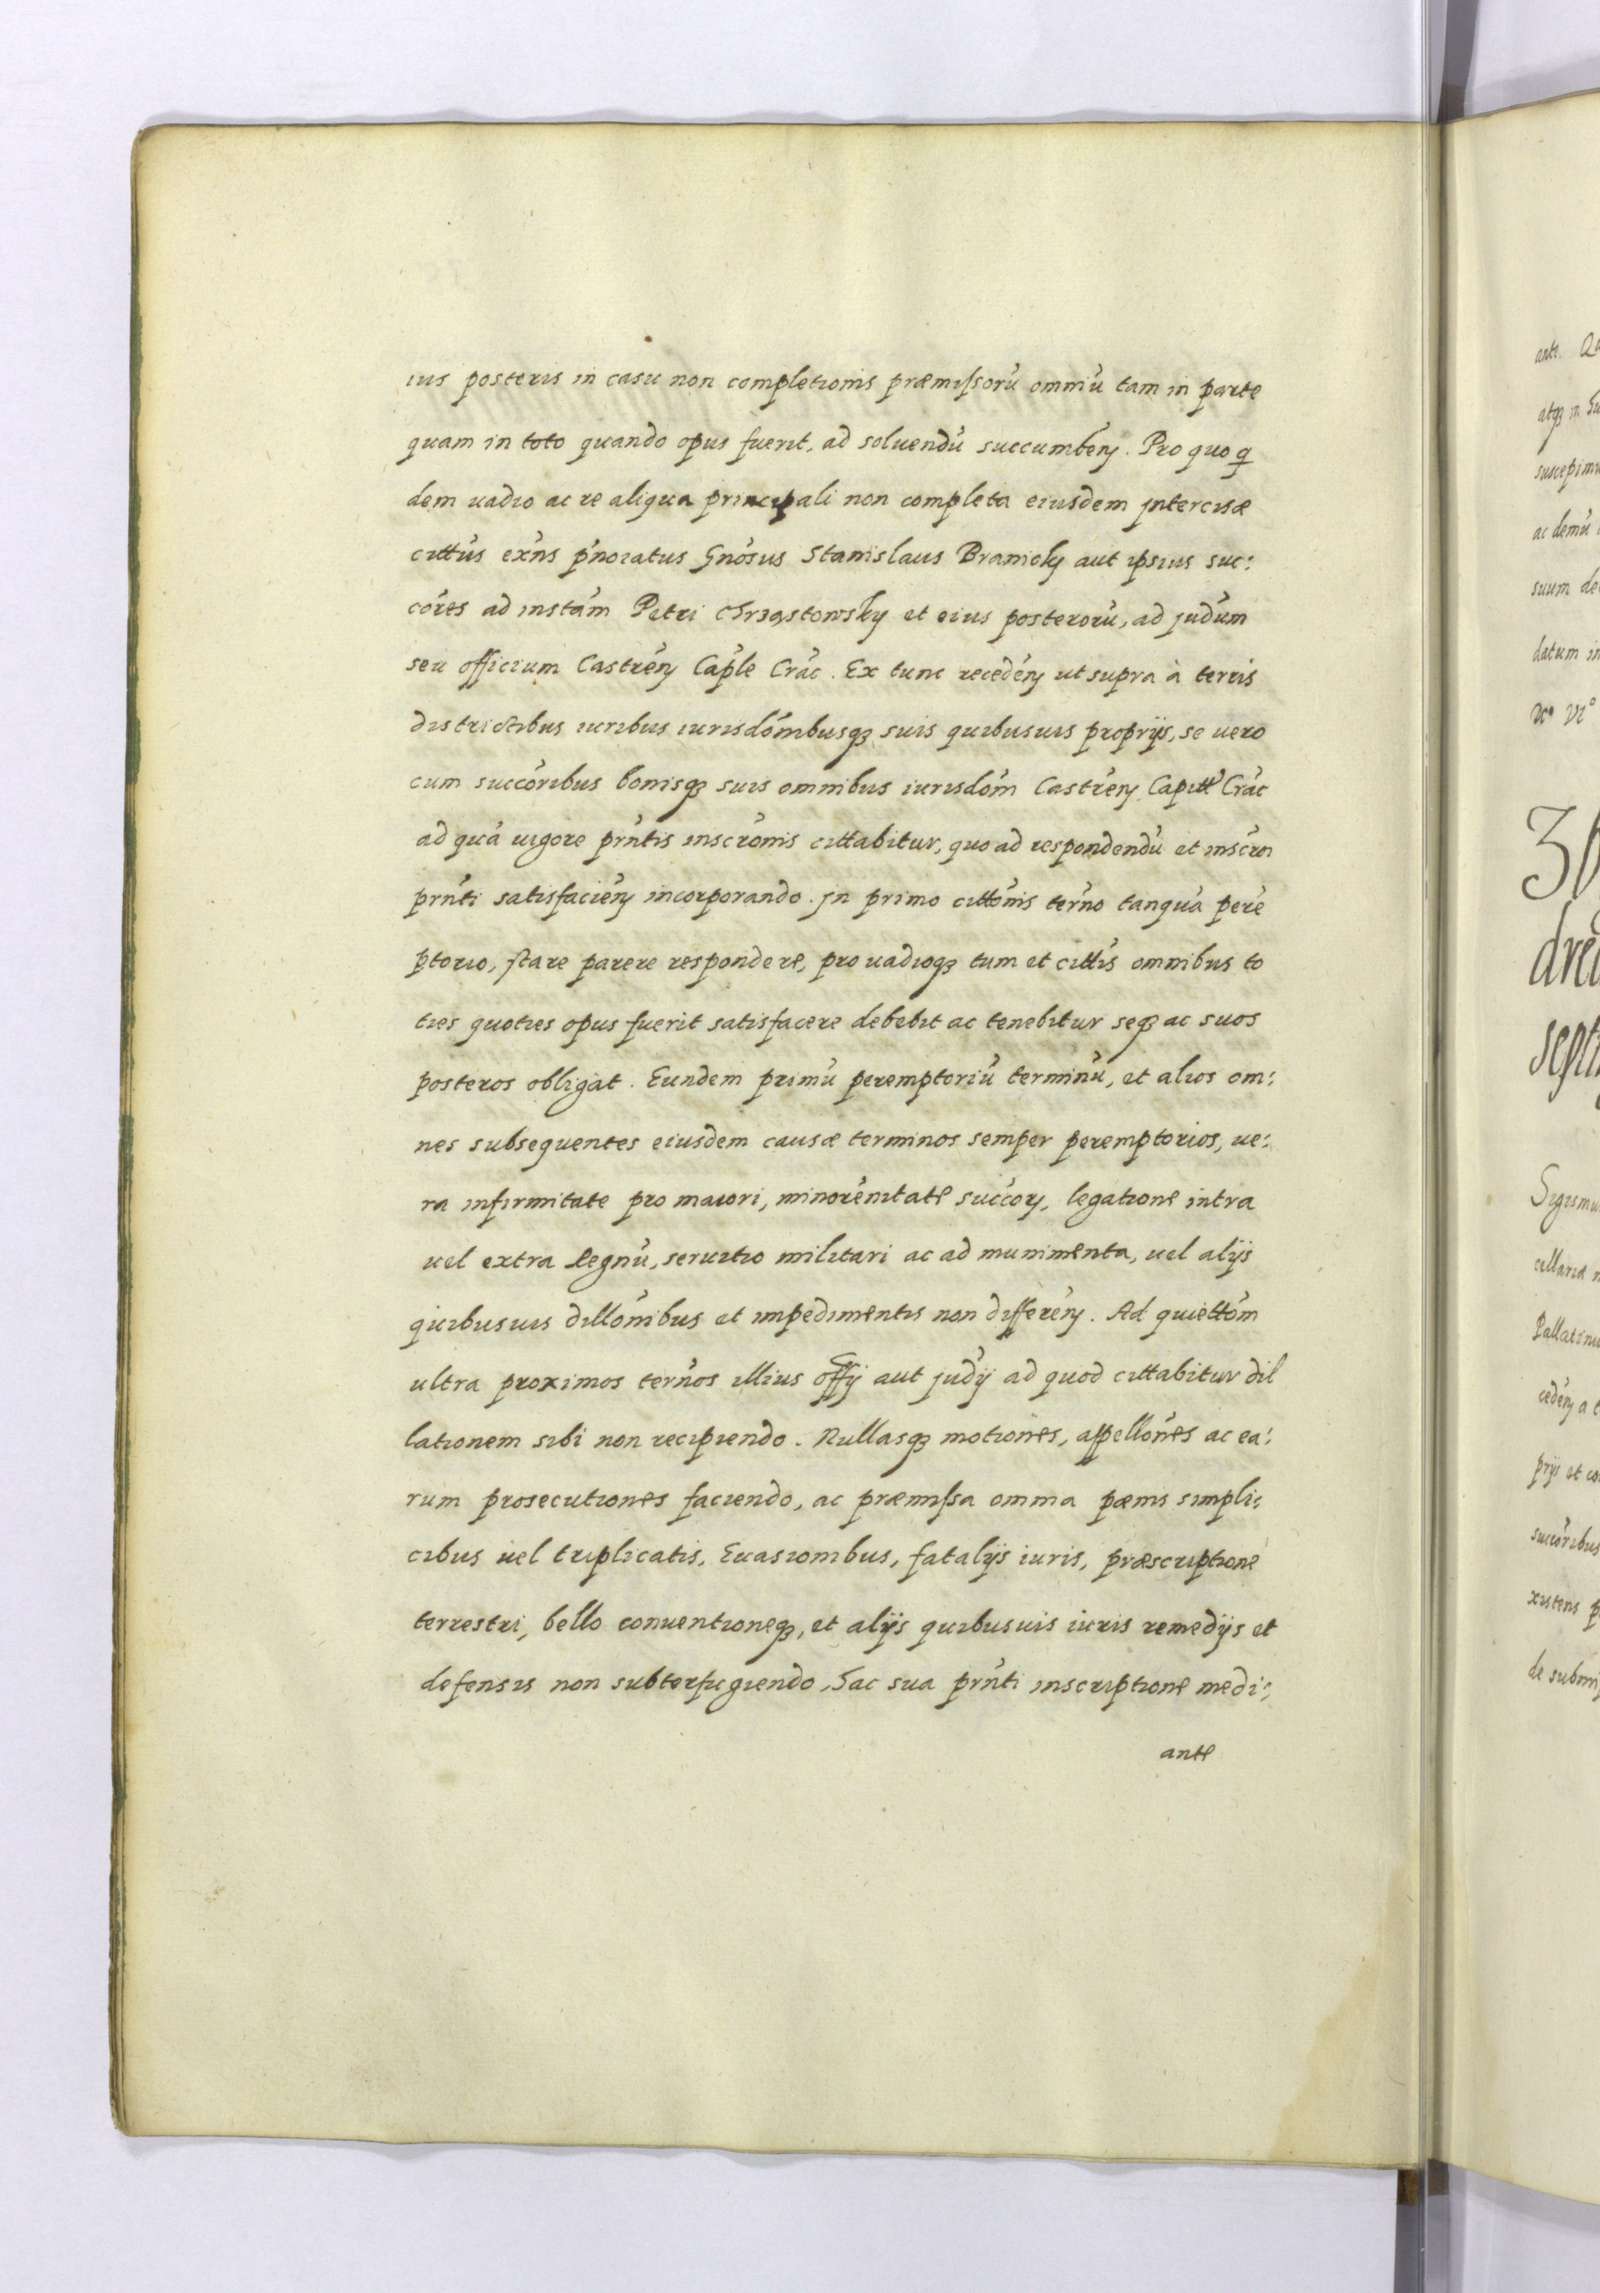 ius posteris in casu non completionis præmissorũ omniũ tam in parte
quam in toto quando opus fuerit, ad soluendũ succumben̄. Pro quo q
dem uadio ac re aliqua principali non completa eiusdem jntercisæ
cittũs exñs pñoratus Gnõsus Stanislaus Branicky aut ipsius suc:
cõres ad instãm Petri Chrząstowsky et eius posterorũ, ad judũm
seu officium Castreñ Caple Crãc. Ex tunc recedeñ ut supra à terris
districtibus iuribus iurisdõnibusqꝫ suis quibusuis proprijs, se uero
cum succõribus bonisqꝫ suis omnibus iurisdõm Castreñ Capitt Crãc
ad quã uigore pñtis inscrõnis cittabitur, quo ad respondendũ et inscrõi
prñti satisfacieñ incorporando. Jn primo cittõnis terño tanquã perẽ
ptorio, stare parere respondere, pro uadioqꝫ tum et cittis omnibus to
ties quoties opus fuerit satisfacere debebit ac tenebitur seqꝫ ac suos
posteros obligat. Eundem primũ peremptoriũ terminũ, et alios om:
nes subsequentes eiusdem causæ terminos semper peremptorios, ue:
ra infirmitate pro maiori, minorẽnitate succoꝝ, legatione intra
uel extra Regnũ, seruitio militari ac ad munimenta, uel alijs
quibusuis dillõnibus et impedimentis non differeñ. Ad quiettõm
ultra proximos terños illius offij aut judij ad quod cittabitur dil
lationem sibi non recipiendo. Nullasqꝫ motiones, appellões ac ea:
rum prosecutiones faciendo, ac præmissa omnia pœnis simpli:
cibus uel triplicatis, Euasionibus, fatalijs iuris, præscriptione
terrestri, bello conuentioneqꝫ, et alijs quibusuis iuris remedijs et
defensis non subterfugiendo, Hac sua prñti inscriptione medi:
ante
ante. Qu
atqꝫ in
suscepimu
ac demũ
suum de
datum in
VI°
36
dre
sept
Sigismu
cellariæ
Pallatinu
cedeñ a t
prijs et co
succõribus
xistens p
de submis